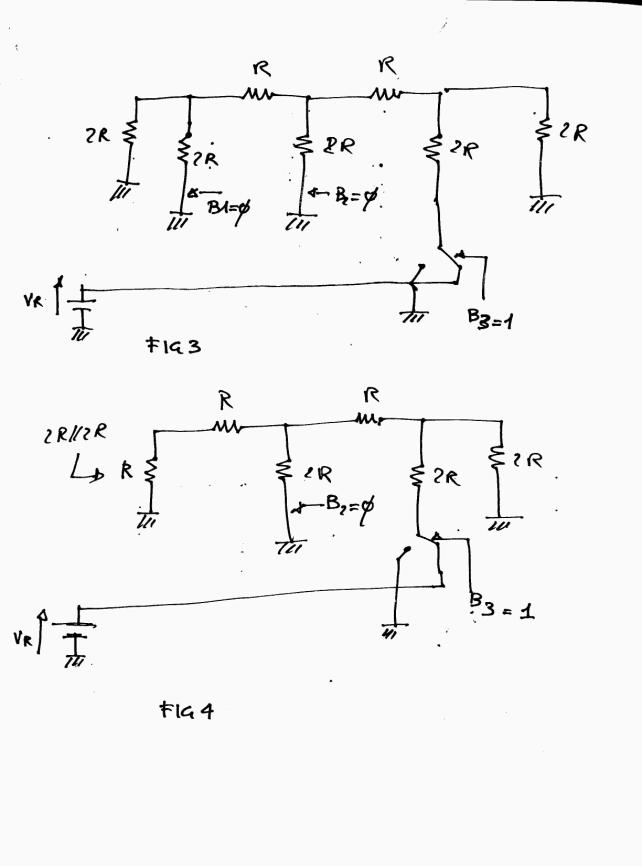 R R
2R 2R 2R 2R 2R
B1=∅ B2=∅
VR
B3=1
FIG 3
R R
2R//2R
R 2R 2R 2R
B2=∅
B3=1
VR
FIG 4